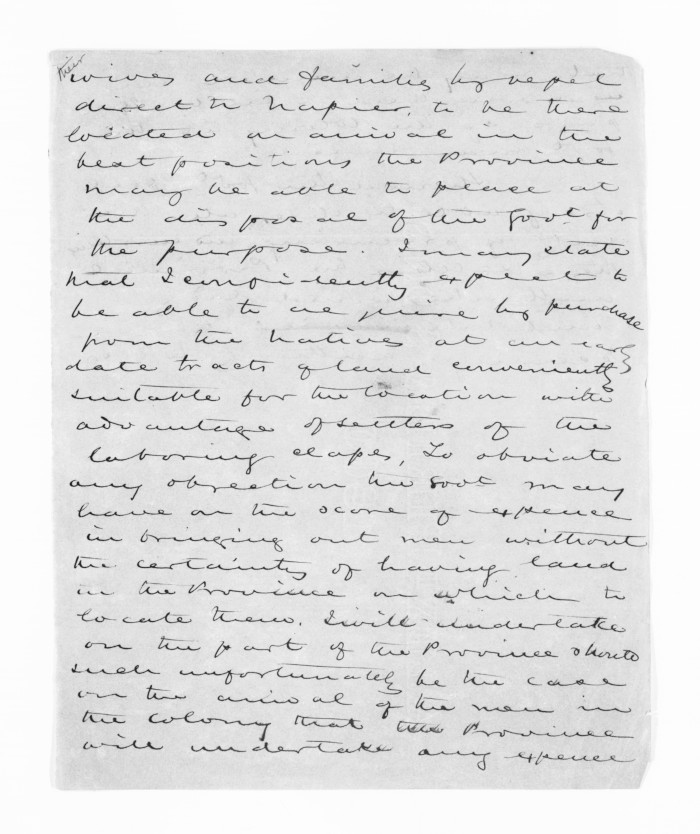 their
wives and families by vessel
direct to Napier, to be there
located on arrival in the
best positions the Province
may be able to place at
the disposal of the Govt for
the purpose. I may state
that I confidently expect to
be able to acquire by purchase
from the Natives at an early
date tracts of land conveniently
suitable for the location with
advantage of settlers of the
laboring classes, To obviate
any objection the Govt may
have on the score of expence
in bringing out men without
the certainty of having land
in the Province on which to
locate them. I will undertake
on the part of the Province should
such unfortunately be the case
on the arrival of the men in
the colony that the Province
will undertake any expence